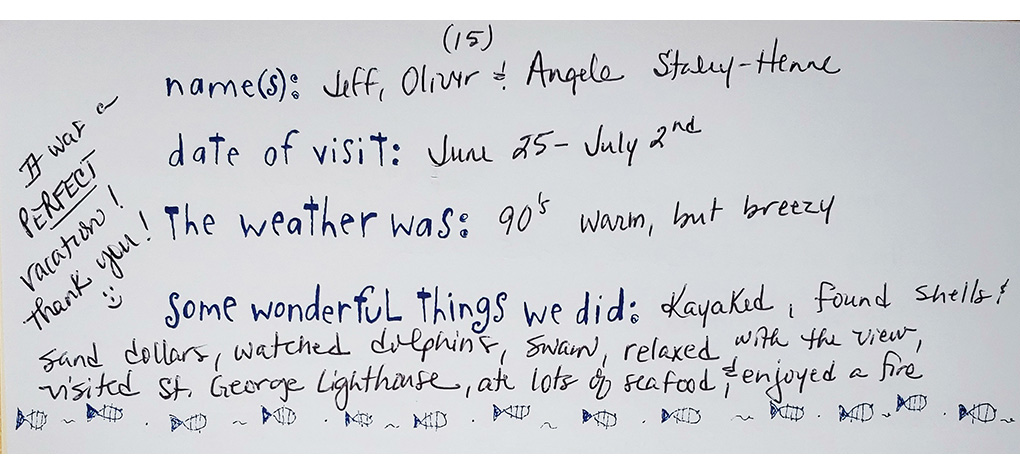 (15)
name(s): Jeff, Oliver & Angela Staley-Henne
date of visit: June 25- July 2nd
The weather was: 90's warm, but breezy
some wonderful things we did: Kayaked, found shells &
sand dollars, watched dolphins, swam, relaxed with the view,
visited St. George Lighthouse, ate lots of seafood, & enjoyed a fire
It was a
PERFECT
vacation!
thank you!